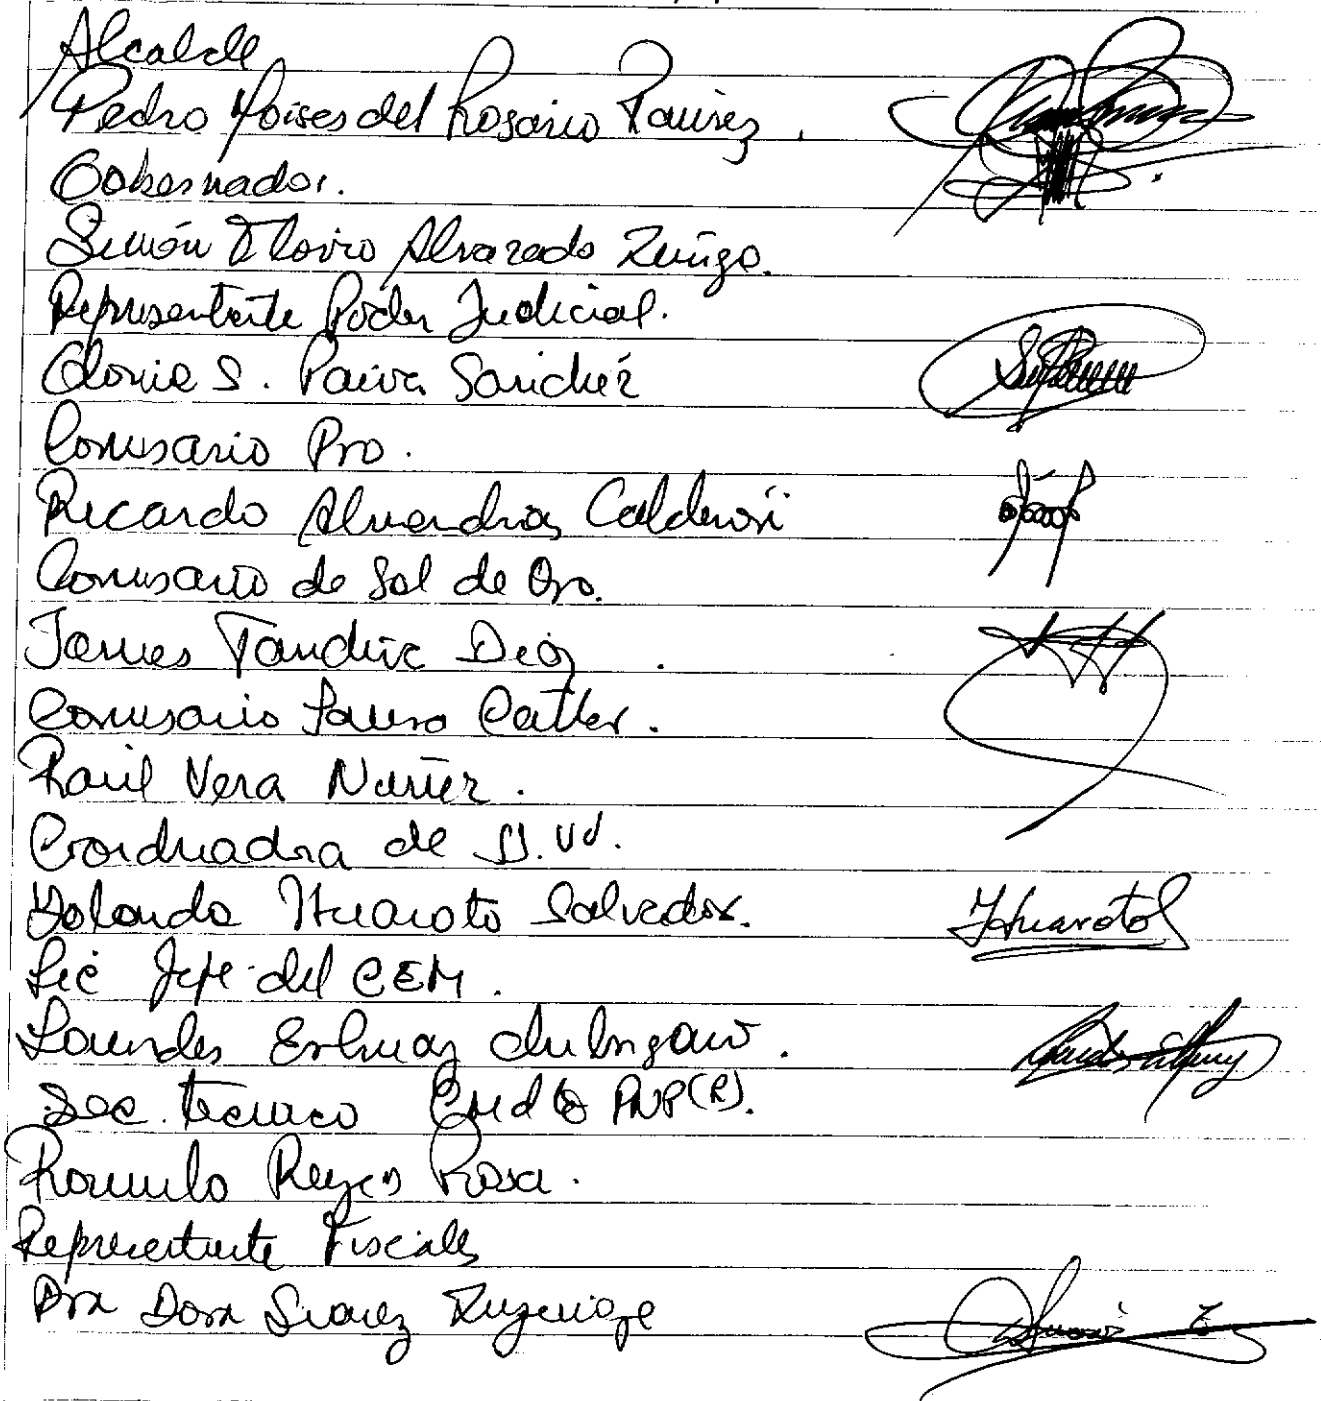 Alcalde
Pedro Moises del Rosario Ramirez.
Gobernador.
Simón Flavio Alvarado Zuñiga.
Representante Poder Judicial.
Gloria S. Paiva Sanchéz
Comisario Pro.
Ricardo Almendras Calderón
Comisario de Sol de Oro.
James Tandira Diaz.
Comisario Laura Caller.
Raúl Vera Nuñez.
Coordinadora de JJ.VV.
Yolanda Huaroto Salvador.
YHuarotoS
Lic Jefe del CEM.
Lourdes
Sec. tecnico Cmdte PNP(R).
Romulo Reyes Rosa.
Representante Fiscales
Dra Dora Suarez